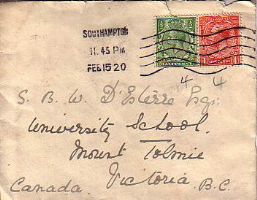 SOUTHAMPTON
11.45 PM
FEB 15 20
4 4
S. B. W. D'Esterre Esq:
University School,
Mount Tolmie
Victoria
Canada. B.C.